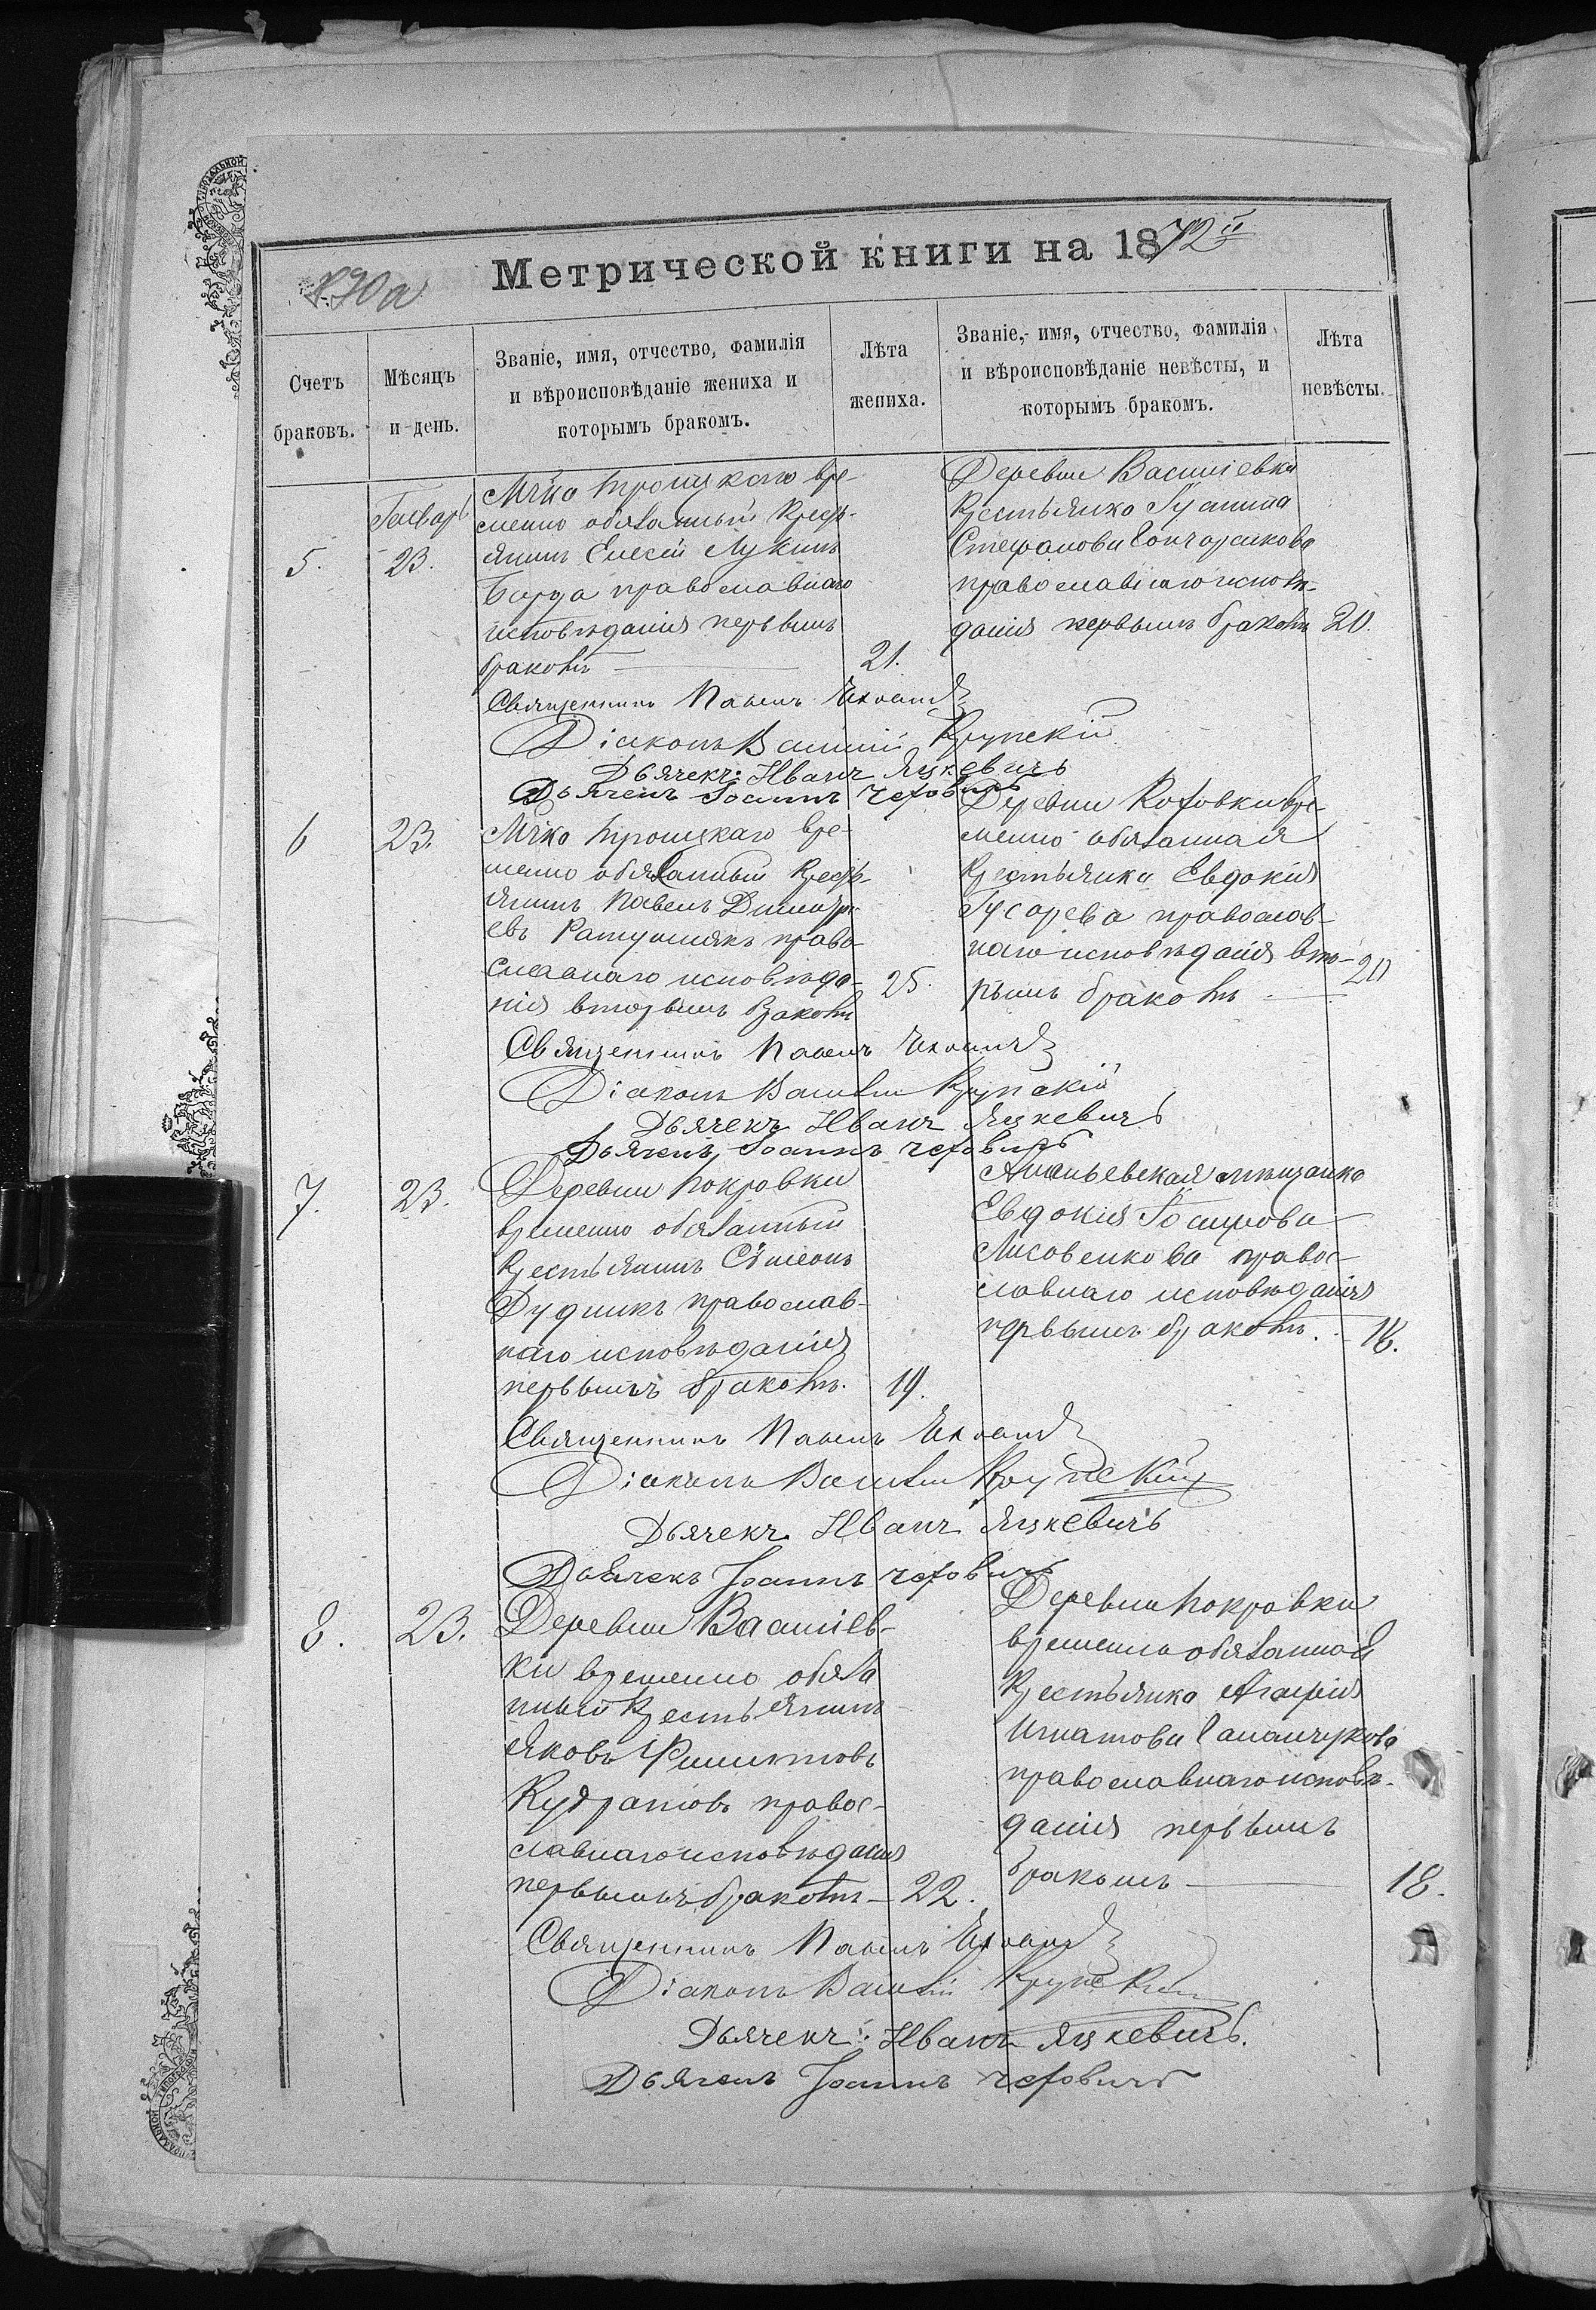 Метрической книги на 1872й
Счетъ браковъ.
Мѣсяцъ и день.
Званіе, имя, отчество, фамилія
и вѣроисповѣданіе жениха и
которымъ бракомъ.
Лѣта
жениха.
Званіе, имя, отчество, фамилія
и вѣроисповѣданіе невѣсты, и
которымъ бракомъ.
Лѣта
невѣсты.
5.
Генварь
23.
Троицкаго вре-
менно обязанный Крест-
янинъ Елисей Лукинъ
православнаго
исповѣданія первымъ
бракомъ
21.
Деревни Василіевки
Крестьянка
Стефанова Гончаренкова
православнаго исповѣ-
данія первымъ бракомъ
20.
Священникъ Павелъ
Діаконъ Василій Крупскій
Дьячекъ: Иванъ Яцкевичъ
Дьячекъ Іоаннъ
6
23.
Троицкаго вре-
менно обязанный Крестъ-
янинъ Павелъ Димитрі-
евъ право-
славнаго исповѣда-
нія вторымъ бракомъ
25.
Деревни вре-
менно обязанная
Крестьянка Евдокія
Гусарева православ-
наго исповѣданія вто-
рымъ бракомъ
20
Священникъ Павелъ
Діаконъ Василій Крупскій
Дьячекъ Иванъ Яцкевичъ
Дьячекъ Іоаннъ
7.
23.
Деревни Покровки
временно обязанный
Крестьянинъ Симеонъ
Дудникъ православ-
наго исповѣданія
первымъ бракомъ.
19.
Ананьевская мѣщанка
Евдокія
Лисовенкова право-
славнаго исповѣданія
первымъ бракомъ.
Священникъ Павелъ
Діаконъ Василій Крупскій
Дьячекъ. Иванъ Яцкевичъ
Дьячекъ Іоаннъ
8.
23.
Деревни Василіев-
ки временно обяза
нный Крестьянинъ
Яковъ Филиповъ
правос-
лавнаго исповѣданія
первымъ бракомъ
22.
Деревни Покровки
временно обязанная
Крестьянка Агафія
Игнатова
православнаго исповѣ-
данія первымъ
бракомъ
18.
Священникъ Павелъ
Діаконъ Василій Крупскій
Дьячекъ: Иванъ Яцкевичъ.
Дьячекъ Іоаннъ